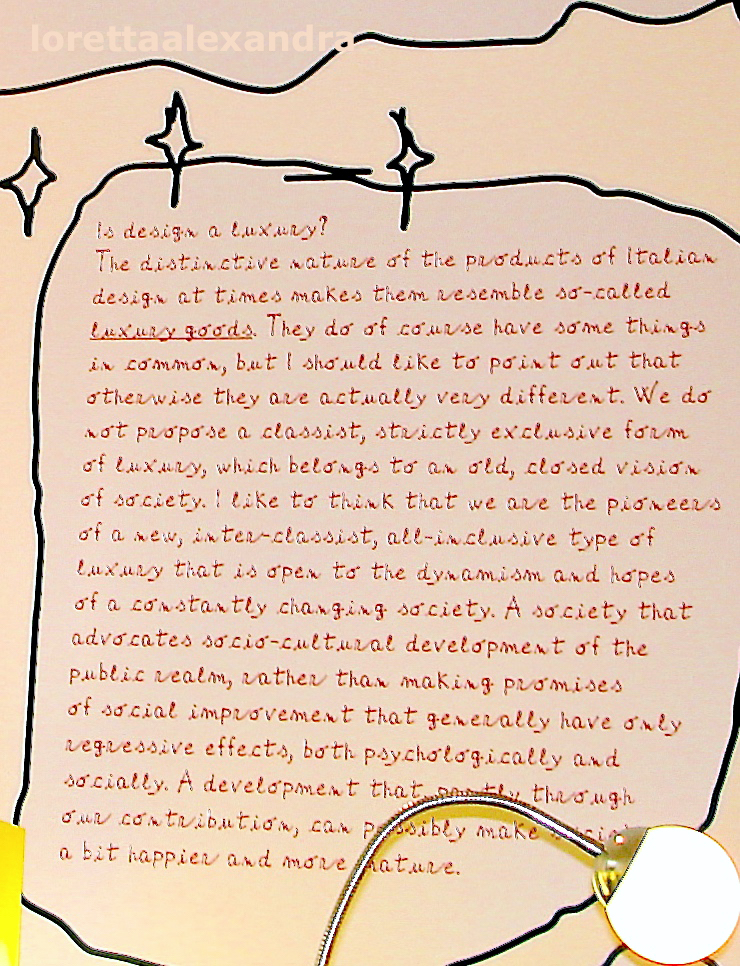 lorettaalexandra
Is design a luxury?
The distinctive nature of the products of Italian
design at times makes them resemble so-called
luxury goods. They do of course have some things
in common, but I should like to point out that
otherwise they are actually very different. We do
not propose a classist, strictly exclusive form
of luxury, which belongs to an old, closed vision
of society. I like to think that we are the pioneers
of a new, inter-classist, all-inclusive type of
luxury that is open to the dynamism and hopes
of a constantly changing society. A society that
advocates socio-cultural development of the
public realm, rather than making promises
of social improvement that generally have only
regressive effects, both psychologically and
socially. A development that partly through
our contribution, can possibly make
a bit happier and more mature.